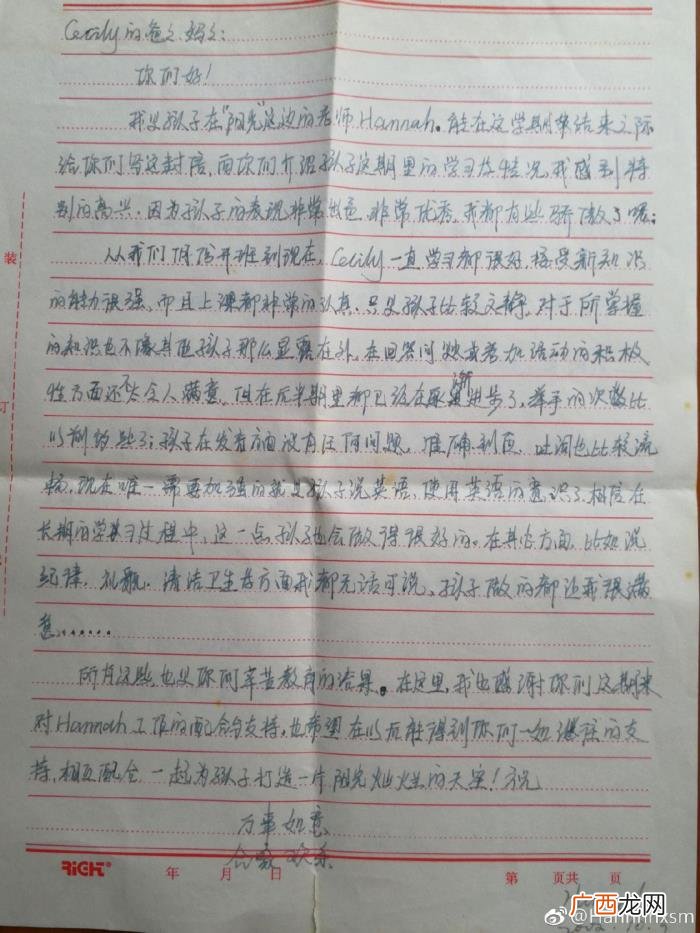 Cecily的爸爸妈妈:
你们好!
我是孩子在"阳光"这边的老师Hannah。能在这学期结束之际
给你们写这封信,向你们介绍孩子这期里的学习及情况,我感到特
别的高兴,因为孩子的表现非常出色,非常优秀,我都有些骄傲了喔;
从我们开班到现在,Cecily一直学习都很好,接受新知识
的能力很强,而且上课都非常的认真。只是孩子比较文静,对于所学握
的知识也不像其他孩子那么显露在外,在回答问题或者参加活动的积极
性方面还不令人满意,但在后半期里都已经在渐进步了,举手的次数比
以前多些了;孩子在发音方面没有任何问题,准确到页,吐词也比较流
畅,现在唯一需要加强的就是孩子说英语,使用英语的意识了,相信在
长期的学习过程中,这一点,孩子也会做得很好的。在其它方面,比如说
纪律,礼貌,清洁卫生等方面我都无话可说,孩子做的都让我很满
意.......
所有这些,也是你们辛苦教育的结果。在这里,我也感谢你们这期来
对Hannah工作的配合与支持,也希望在以后能得到你们一如继往的支
持,相互配合,一起为孩子打造一片阳光灿烂的天空!祝
万事如意
合家欢乐
装
订
RiCHT
年 月 日
第 页共 页
广西龙网
@Hannnnxsm